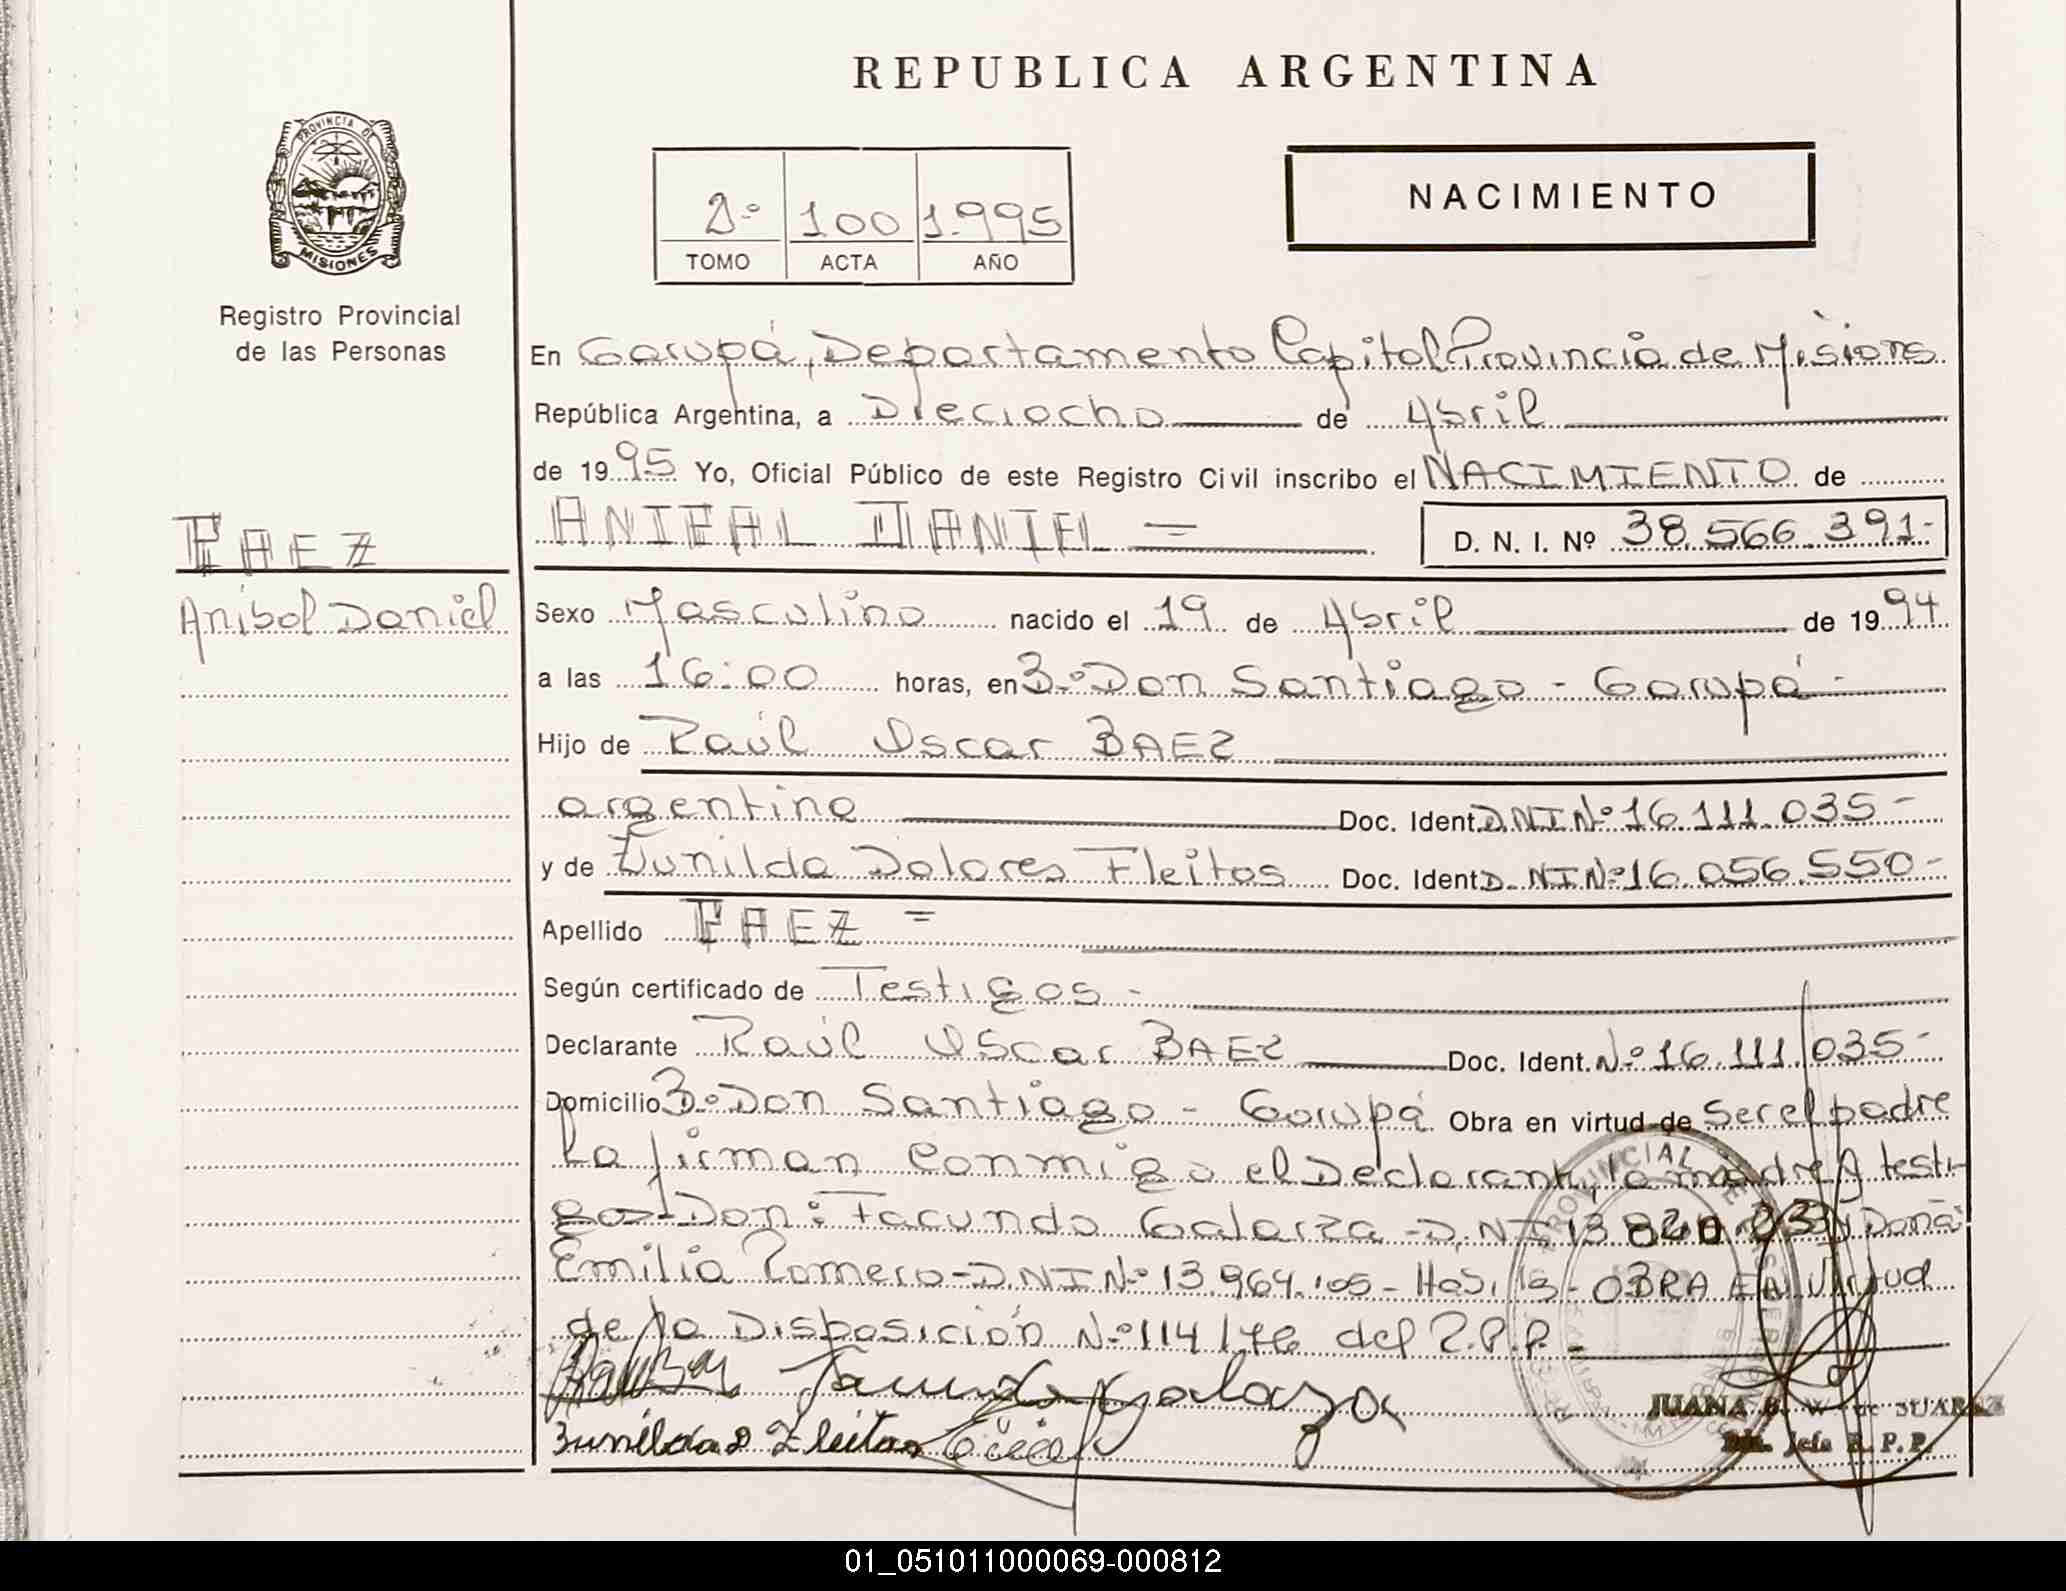 REPUBLICA ARGENTINA
PROVINCIA DE
MISIONES
Registro Provincial
de las Personas
2º 100 1.995
TOMO ACTA AÑO
NACIMIENTO
En Garupá, Departamento Capital Provincia de Misiones
República Argentina, a Dieciocho de Abril
de 1995 Yo, Oficial Público de este Registro Civil inscribo el NACIMIENTO de
ANIBAL DANIEL =
D. N. I. Nº 38.566.391-
BAEZ
Anibal Daniel
Sexo Masculino nacido el 19 de Abril de 1994
a las 16:00 horas, en Bº Don Santiago - Garupá -
Hijo de Raúl Oscar BAEZ
argentino Doc. Ident. DNI Nº 16.111.035-
y de Zunilda Dolores Fleitas Doc. Ident. D.NI Nº 16.056.550-
Apellido BAEZ =
Según certificado de Testigos -
Declarante Raúl Oscar BAEZ Doc. Ident. Nº 16.111.035-
Domicilio Bº Don Santiago - Garupá Obra en virtud de Ser el padre
La firman conmigo el Declarante, la madre y testi-
gos Don: Facundo Galarza - D.NI 13 820 y Doña
Emilia Romero - D.NI Nº 13.964.105 - OBRA EN Virtud
de la Disposición Nº 114/76 del R.P.P. -
Facundo Galarza
Zunilda D Fleitas
PROVINCIAL DE
JUANA B. W. de SUAREZ
Jefa R. P. P.
01_051011000069-000812